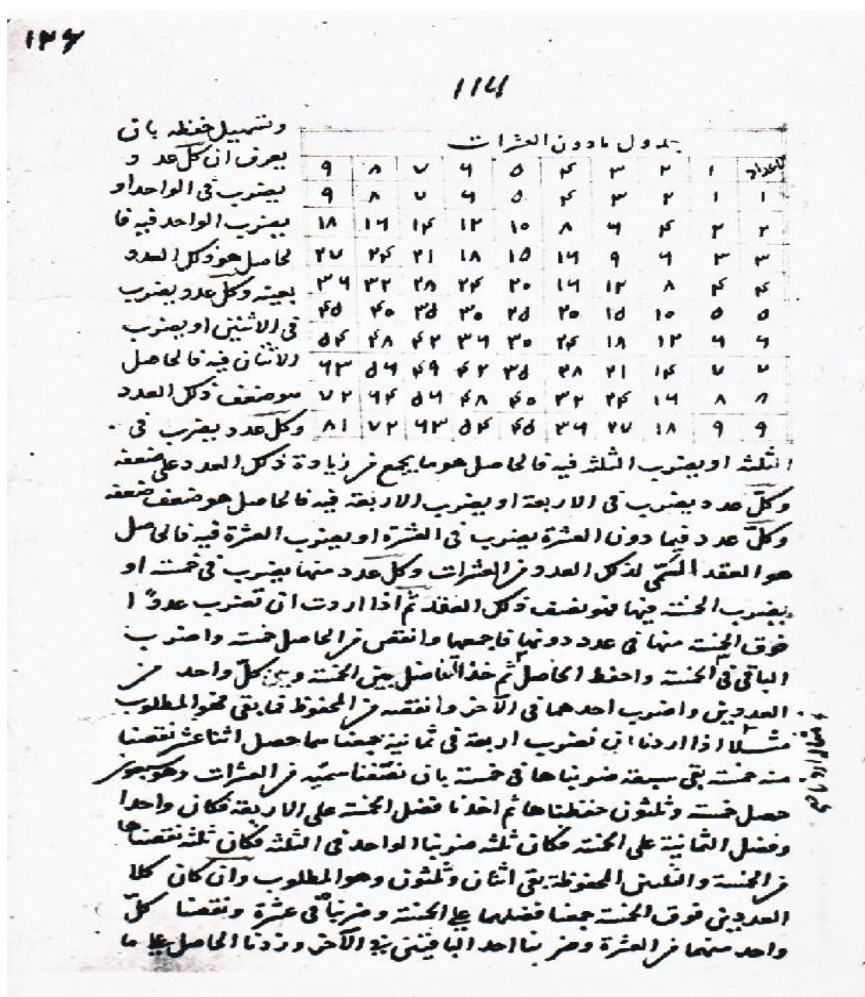 ١٢٦
جدول مادون العشرات
الاعداد ١ ٢ ٣ ۴ ٥ ٦ ٧ ٨ ٩
١ ١ ٢ ٣ ۴ ٥ ٦ ٧ ٨ ٩
٢ ٢ ۴ ٦ ٨ ١٠ ١٢ ١۴ ١٦ ١٨
٣ ٣ ٦ ٩ ١٢ ١٥ ١٨ ٢١ ٢۴ ٢٧
۴ ۴ ٨ ١٢ ١٦ ٢٠ ٢۴ ٢٨ ٣٢ ٣٦
٥ ٥ ١٠ ١٥ ٢٠ ٢٥ ٣٠ ٣٥ ۴٠ ۴٥
٦ ٦ ١٢ ١٨ ٢۴ ٣٠ ٣٦ ۴٢ ۴٨ ٥۴
٧ ٧ ١۴ ٢١ ٢٨ ٣٥ ۴٢ ۴٩ ٥٦ ٦٣
٨ ٨ ١٦ ٢۴ ٣٢ ۴٠ ۴٨ ٥٦ ٦۴ ٧٢
٩ ٩ ١٨ ٢٧ ٣٦ ۴٥ ٥۴ ٦٣ ٧٢ ٨١
وتسهيل حفظه بان
يعرف ان كل عدد
يضرب فى الواحد او
يضرب الواحد فيه فا
لحاصل هو ذلك العدد
بعينه وكل عدد يضرب
فى الاثنين او يضرب
الاثنان فيه فالحاصل
هو ضعف ذلك العدد
وكل عدد يضرب فى
الثلثه او يضرب الثلثه فيه فالحاصل هو ما يجمع من زيادة ذلك العدد على ضعفه
وكل عدد يضرب فى الاربعة او يضرب الاربعة فيه فالحاصل هو ضعف ضعفه
وكل عدد فيما دون العشرة يضرب فى العشرة او يضرب العشرة فيه فالحاصل
هو العقد السمى لذلك العدد من العشرات وكل عدد منها يضرب فى خمسة او
يضرب الخمسة فيها فهو نصف ذلك العقد ثم اذا اردت ان تضرب عددًا
فوق الخمسة منها فى عدد دونها فاجمعها وانقص من الحاصل خمسة واضرب
الباقى فى الخمسة واحفظ الحاصل ثم خذ التفاضل بين الخمسة وبين كل واحد من
العددين واضرب احدهما فى الآخر وانقصه من المحفوظ فما بقى فهو المطلوب
مثلا اذا اردنا ان نضرب اربعة فى ثمانية جمعناهما حصل اثنا عشر نقصنا
منه خمسة بقى سبعة ضربناها فى خمسة بان نصفنا سميه من العشرات وهو سبعون
حصل خمسة وثلثون حفظناها ثم اخذنا فضل الخمسة على الاربعة فكان واحدا
وفضل الثمانية على الخمسة فكان ثلثه ضربنا الواحد فى الثلثه فكان ثلثه نقصناها
من الخمسة والثلثين المحفوظة بقى اثنان وثلثون وهو المطلوب وان كان كلا
العددين فوق الخمسة جمعنا فضلهما على الخمسة وضربنا فى عشرة ونقصنا كل
واحد منهما من العشرة وضربنا احد الباقيين فى الآخر وزدنا الحاصل على ما